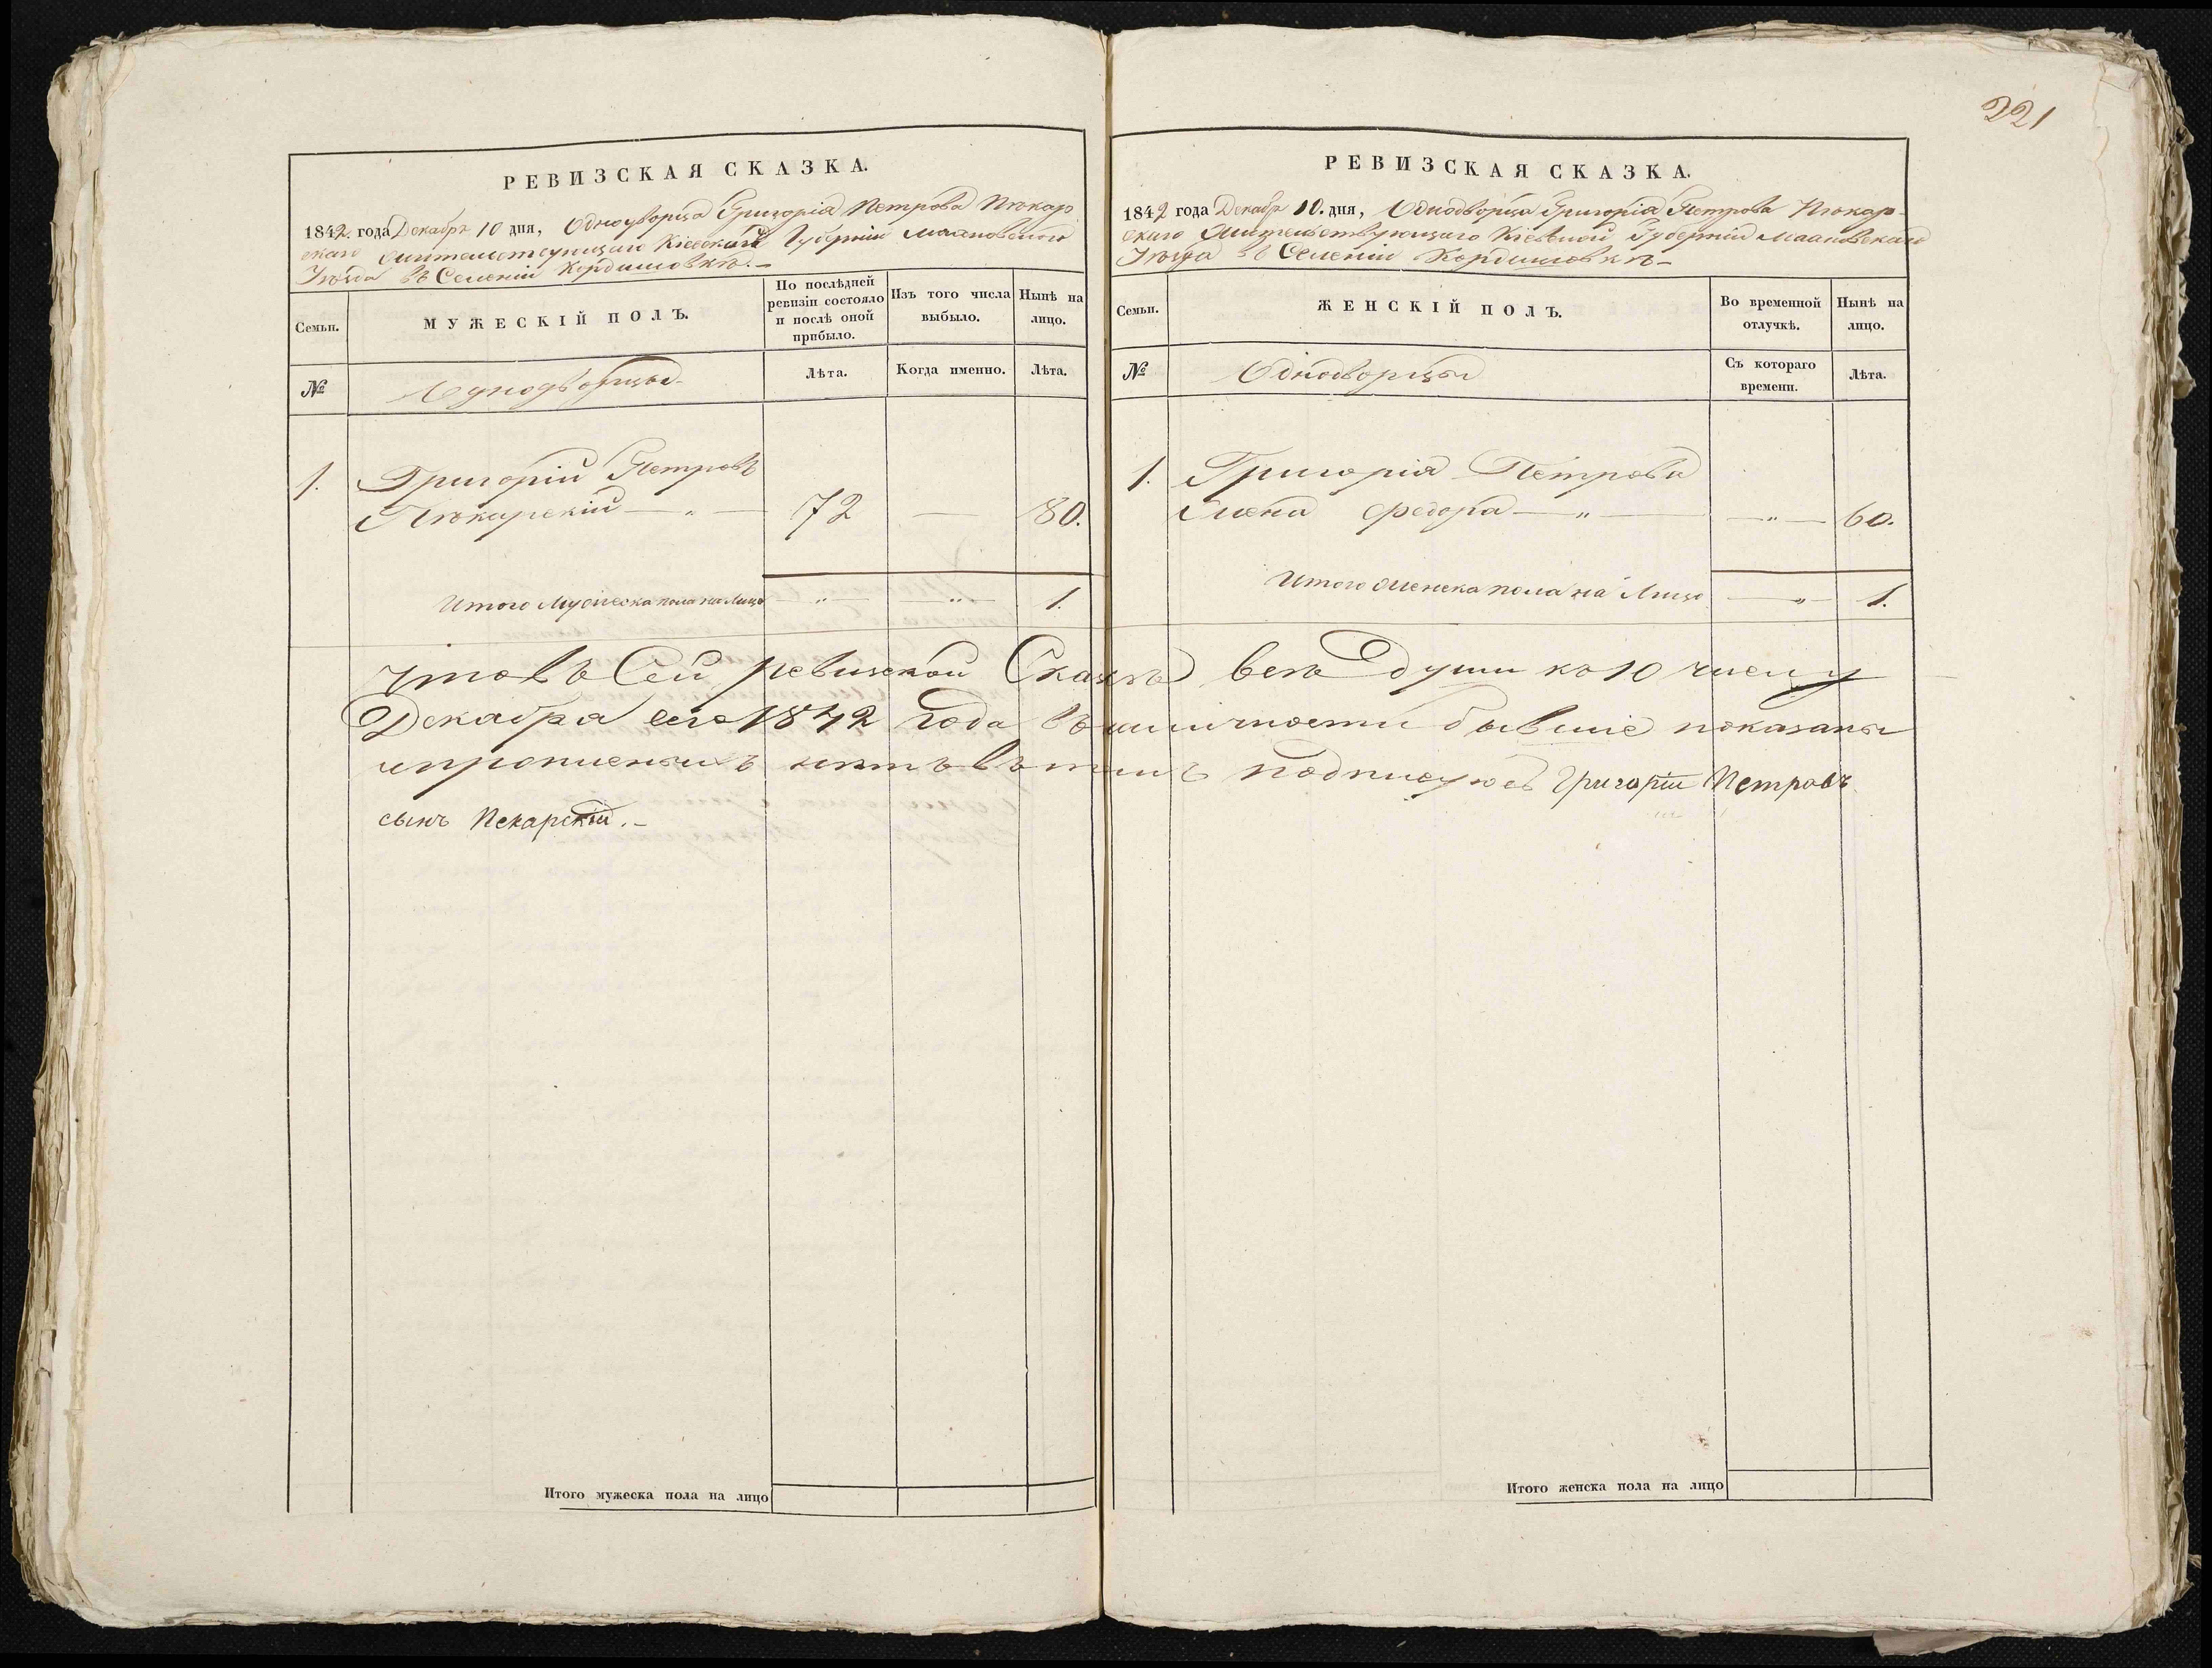 221
РЕВИЗСКАЯ СКАЗКА.
1842 года Декабря 10 дня, Однодворца Григорія Петрова Пѣкар
скаго Жителствующаго Кіевской Губерніи Махновскаго
Уѣзда въ Селеніи Кордишовкѣ.—
Семьи.
МУЖЕСКІЙ ПОЛЪ.
По послѣдней ревизіи состояло и послѣ оной прибыло.
Изъ того числа выбыло.
Нынѣ на лицо.
№
Однодворцы
Лѣта.
Когда именно.
Лѣта.
1. Григорій Петровъ
Пѣкарскій — „ — 72 — 80.
Итого Мужеска пола на Лицо — „ — — „ — 1.
РЕВИЗСКАЯ СКАЗКА.
1842 года Декабря 10. дня, Однодворца Григорія Петрова Пѣкар-
скаго Жительствующаго Кіевской Губерніи Махновскаго
Уѣзда въ Селеніи Кордишовкѣ—
Семьи.
ЖЕНСКІЙ ПОЛЪ.
Во временной отлучкѣ.
Нынѣ на лицо.
№
Однодворцы
Съ котораго времени.
Лѣта.
1. Григорія Петрова
Жена Федора — „ — — „ — 60.
Итого Женска пола на Лицо — „ — 1.
Что въ Сей ревизской Сказкѣ всѣ души ко 10 числу
Декабря сего 1842 года въ наличности бывшіе показаны
и прописныхъ нѣтъ въ томъ подписуюсь Григорій Петровъ
сынъ Пекарскій.—
Итого мужеска пола на лицо
Итого женска пола на лицо